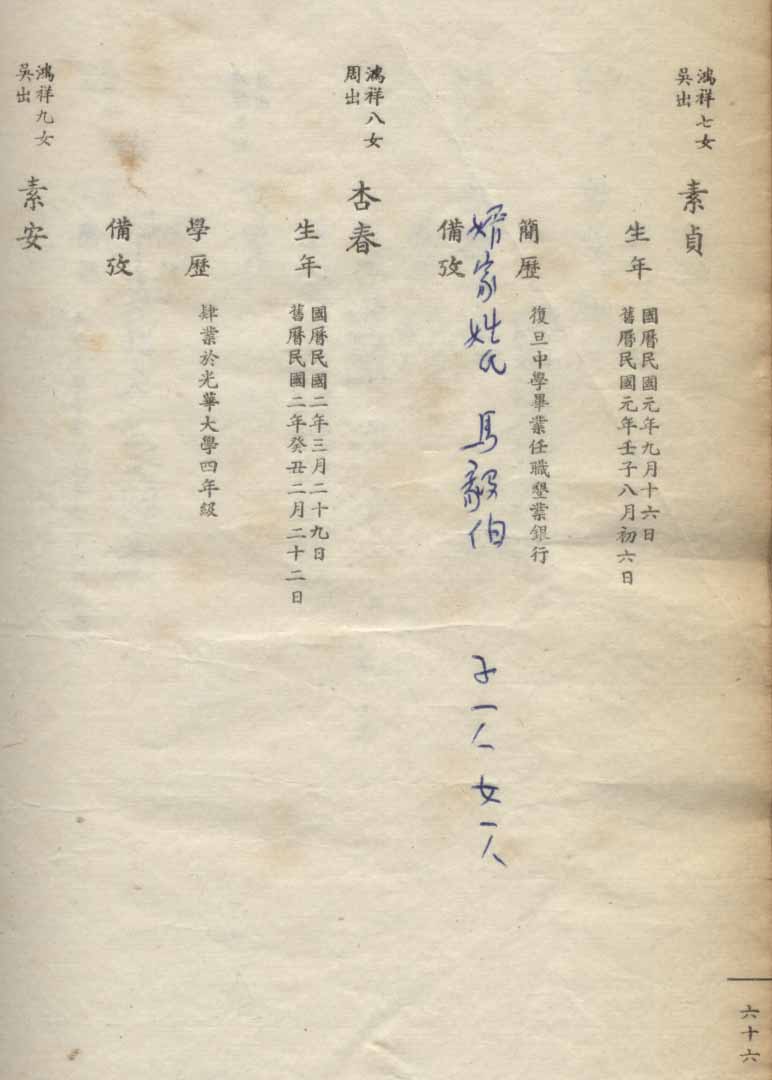 鴻祥七女
吳出
素貞
生年
國曆民國元年九月十六日
舊曆民國元年壬子八月初六日
簡歷
復旦中學畢業任職墾業銀行
備攷
婿家姓氏 馬毅伯 子一人 女一人
鴻祥八女
周出
杏春
生年
國曆民國二年三月二十九日
舊曆民國二年癸丑二月二十二日
學歷
肄業於光華大學四年級
備攷
鴻祥九女
吳出
素安
六十六